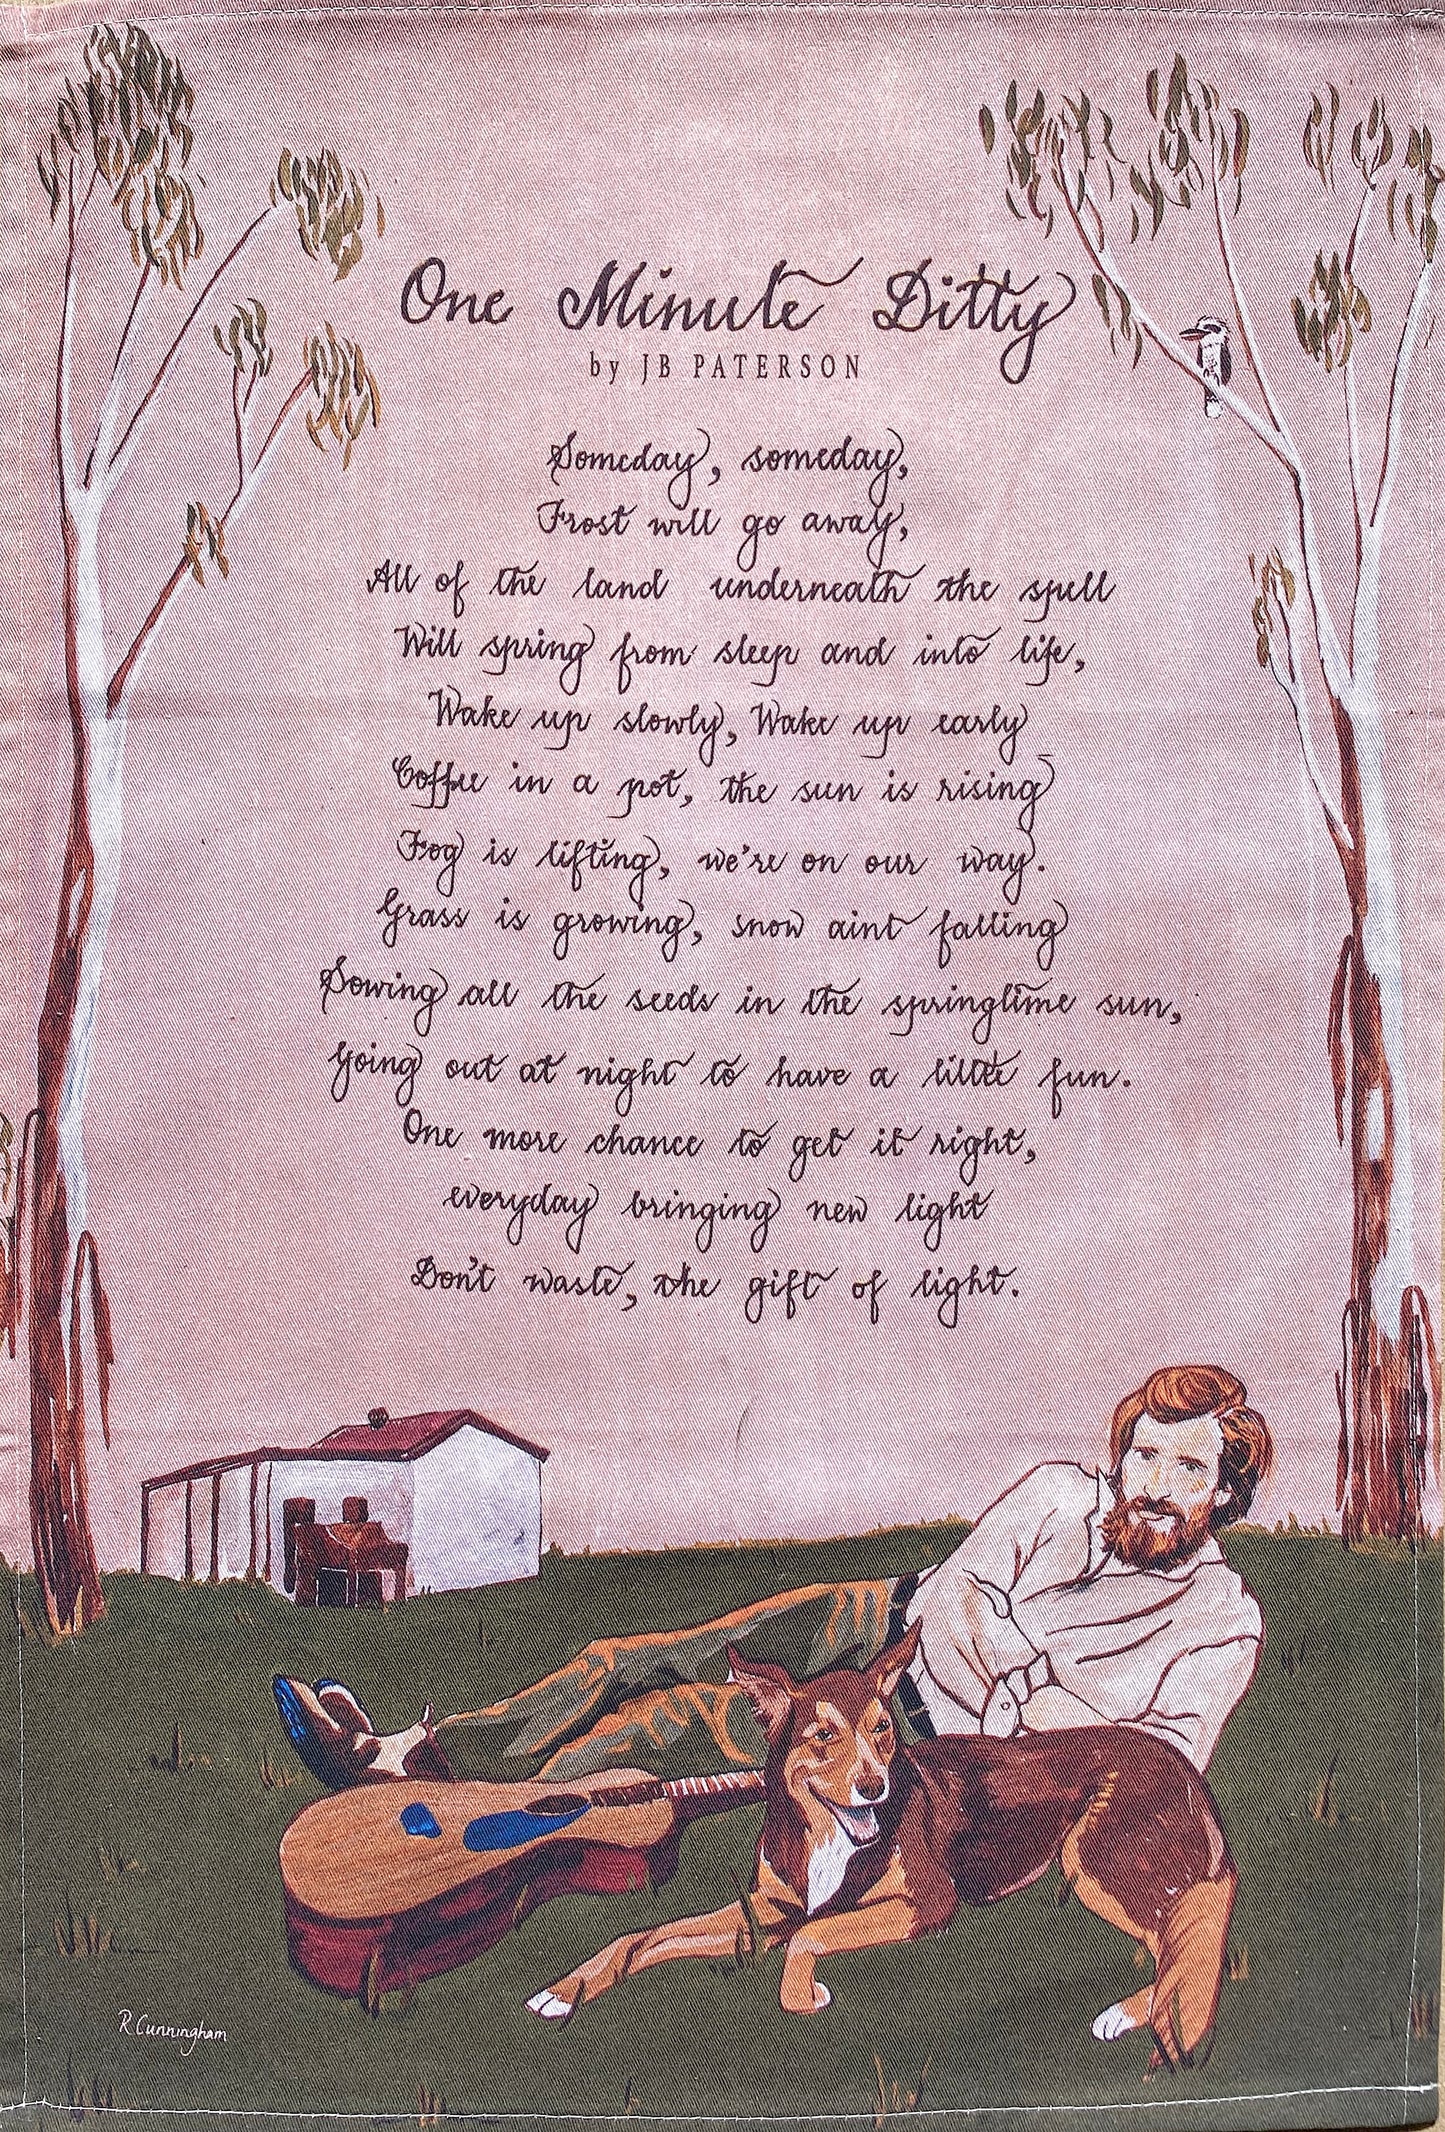 One Minute Ditty
by JB PATERSON
Someday, someday,
Frost will go away,
All of the land underneath the spell
Will spring from sleep and into life,
Wake up slowly, Wake up early
Coffee in a pot, the sun is rising
Fog is lifting, we're on our way.
Grass is growing, snow aint falling
Sowing all the seeds in the springtime sun,
Going out at night to have a little fun.
One more chance to get it right,
everyday bringing new light
Don't waste, the gift of light.
R Cunningham